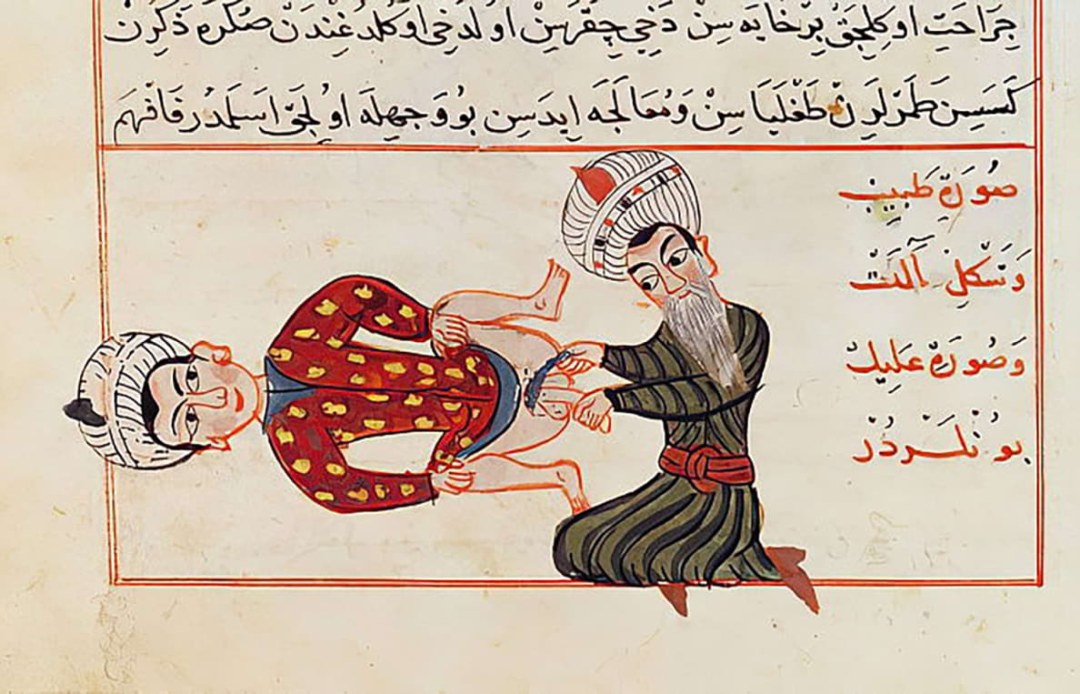 جِرَاحَتِ اوُكِلِجَقْ بِرْخَايَه سِنْ دَخِي چِقَرَسِنْ اوُلدَخِى اوُكُلدُغِنْدَنْ صُكْرَه ذَكَرِنْ
كَسَسِنْ طَمَرْلَرِنْ طَغْلَيَا سِنْ وَمُعَالَجَه اِيدَسِن بوُ وَجهِلَه اوُلِجَقْ اسَلمدُر فَافْهَم
صُورَةِ طَبِيبْ
وَشَكْلِ آلَتْ
وَصُورَةِ عَلِيلْ
بوُنلَردُرْ